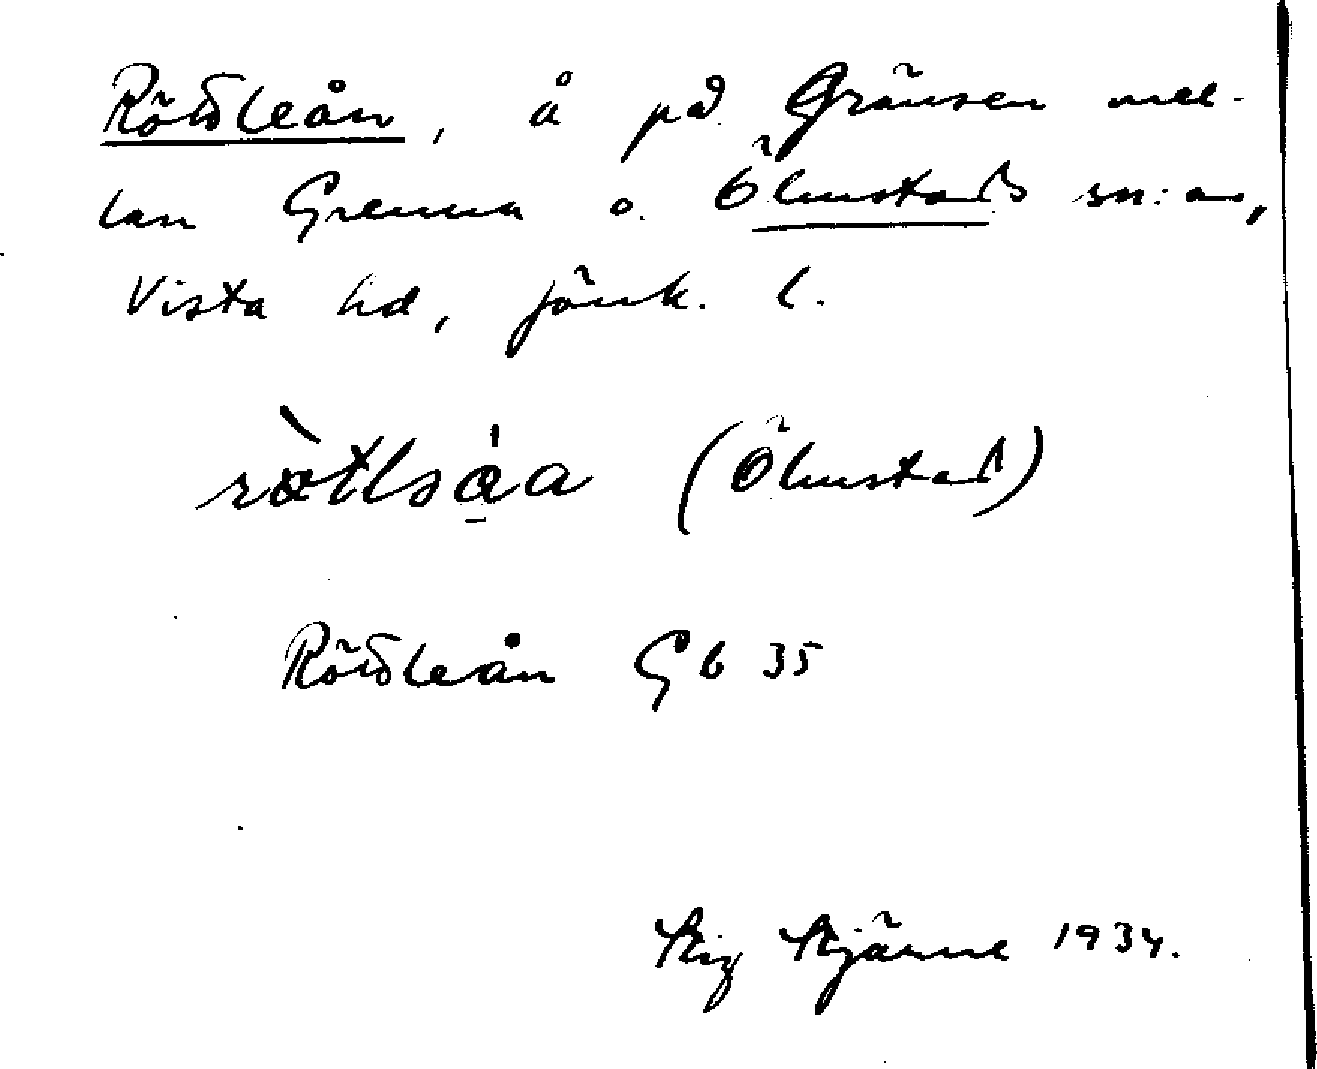 Röttleån, å på Gränsen mel-
lan Grenna o. Ölmstads sn:ar,
Vista hd, Jönk. l.
(Ölmstad)
Röttleån Gb 35
Stig Stjärne 1934.